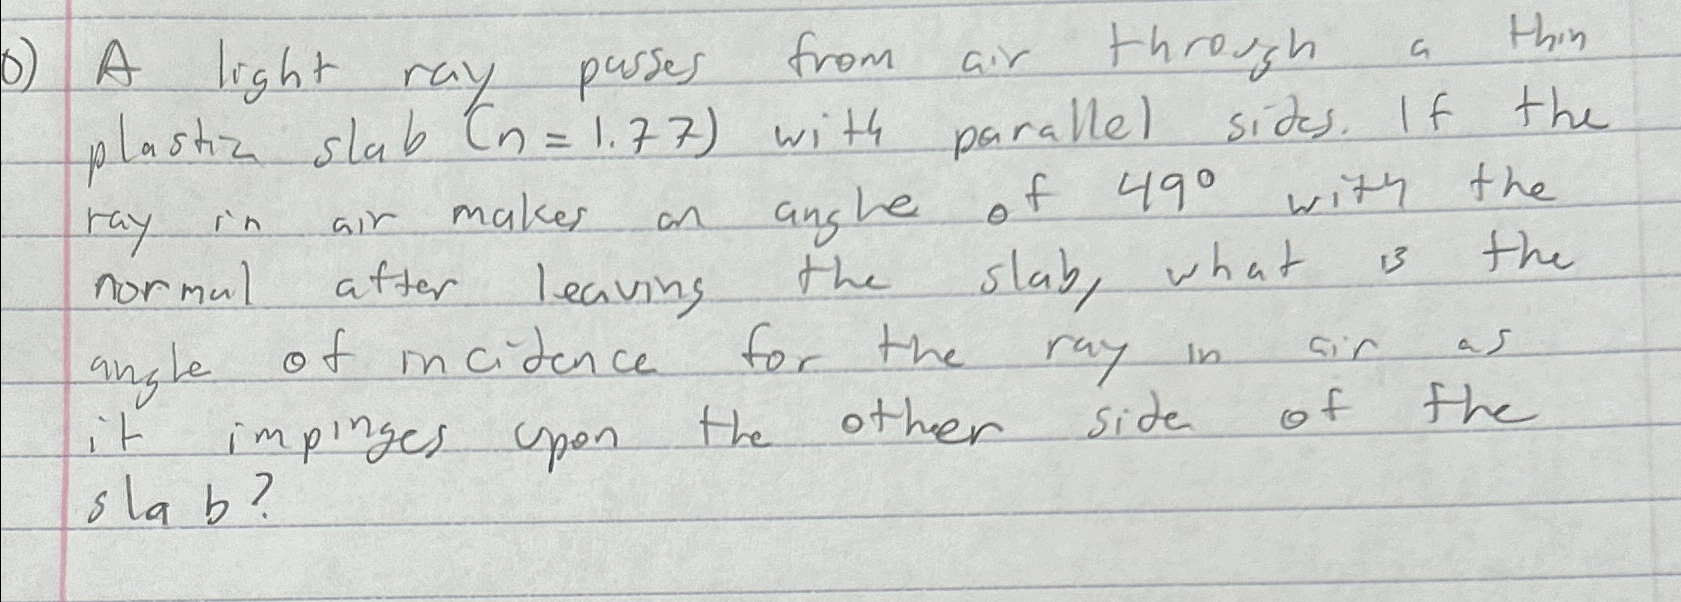 6) A light ray passes from air through a thin
plastic slab (n = 1.77) with parallel sides. If the
ray in air makes an angle of 49° with the
normal after leaving the slab, what is the
angle of incidence for the ray in air as
it impinges upon the other side of the
slab?